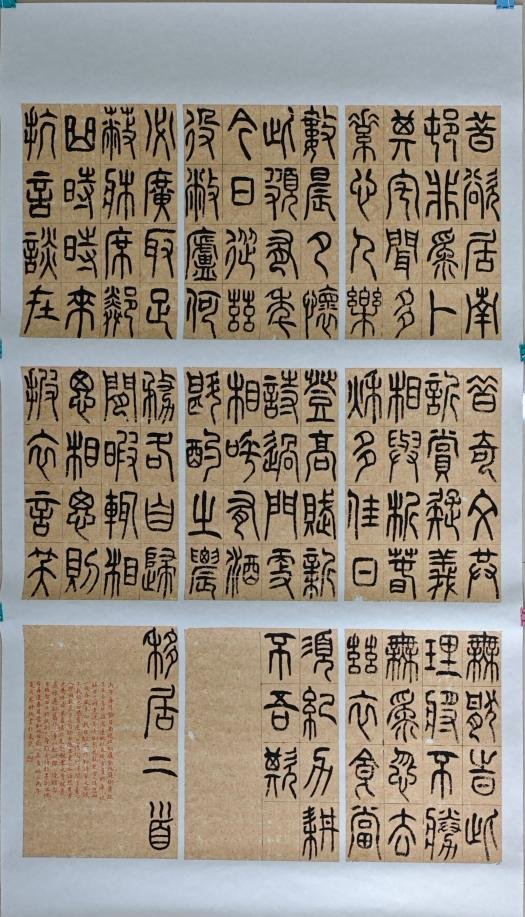 昔欲居南
邨非為卜
其宅聞多
素心人樂
數晨夕懷
此頗有年
今日從茲
役敝廬何
必廣取足
蔽牀席鄰
曲時時來
抗言談在
昔奇文共
訢賞疑義
相與析春
秋多佳日
登高賦新
詩過門更
相呼有酒
斟酌之農
務各自歸
閒暇輒相
思相思則
披衣言笑
無厭旹此
理將不勝
無為忽去
茲衣食當
須紀力耕
不吾欺
移居二首